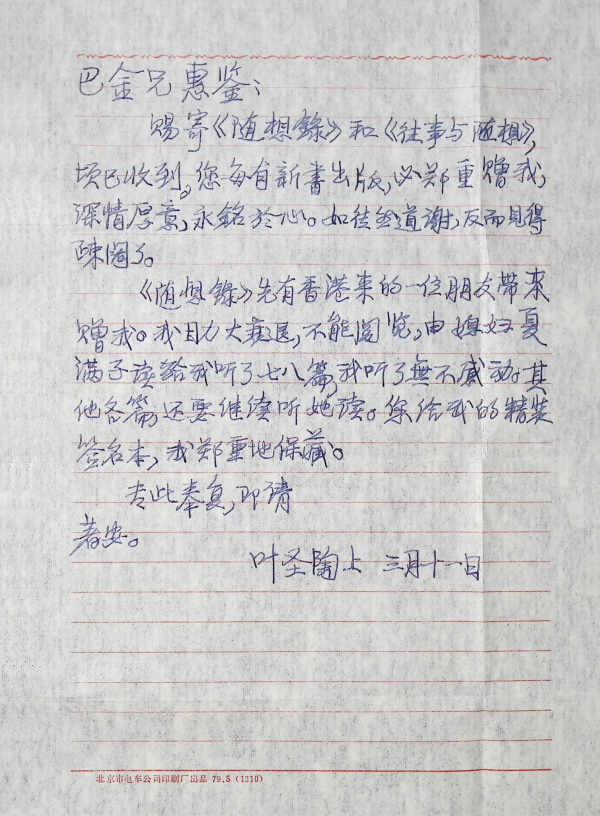 巴金兄惠鉴:
赐寄《随想錄》和《往事与随想》,
顷已收到。您每有新書出版,必郑重赠我,
深情厚意,永銘於心。如徒然道谢,反而見得
疎阔了。
《随想錄》先有香港来的一位朋友带来
赠我。我目力大衰退,不能閲览,由媳妇夏
满子读給我听了七八篇,我听了無不感动。其
他各篇,还要继续听她读。您给我的精装
签名本,我郑重地保藏。
专此奉复,即请
著安。
叶圣陶上 三月十一日
北京市电车公司印刷厂出品 79.5 (1210)